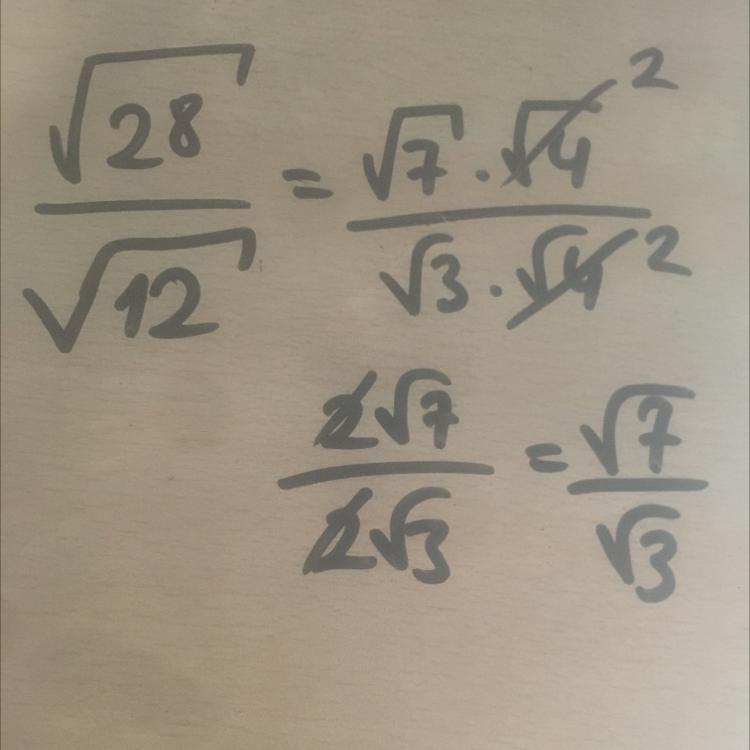 √28/√12 = √7 · √4 2/√3 · √4 2
2√7/2√3 = √7/√3